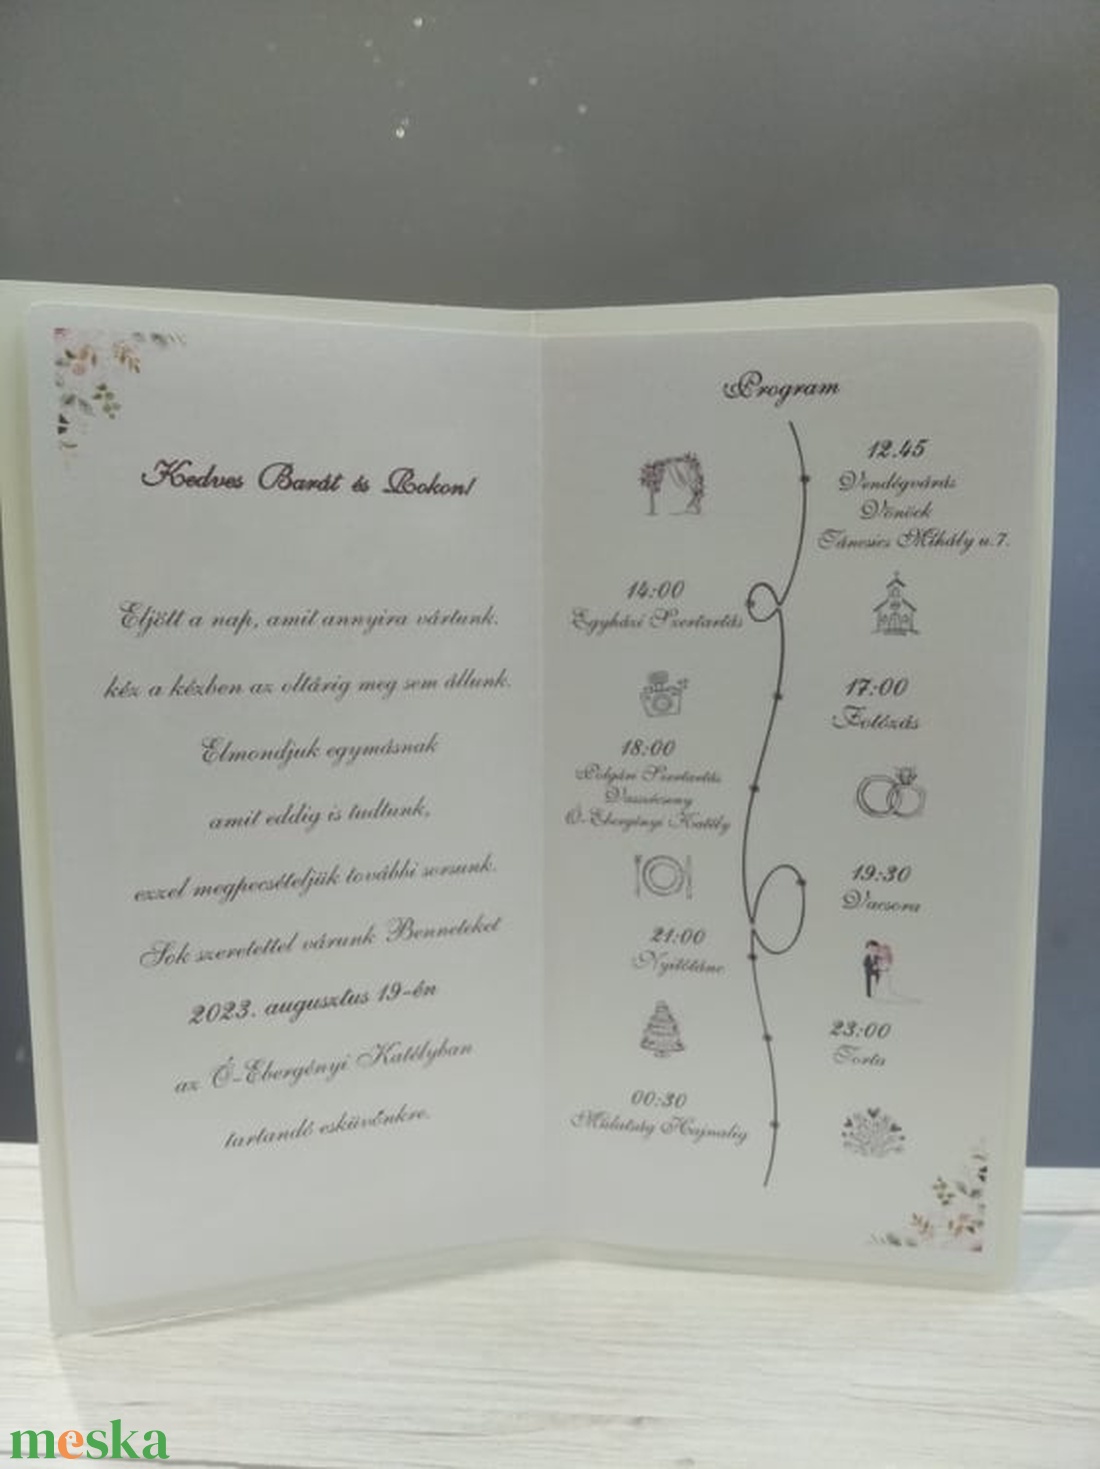 Kedves Barát és Rokon!
Eljött a nap, amit annyira vártunk.
kéz a kézben az oltárig meg sem állunk.
Elmondjuk egymásnak
amit eddig is tudtunk,
ezzel megpecsételjük további sorsunk.
Sok szeretettel várunk Benneteket
2023. augusztus 19-én
az Ó-Ebergényi Katélyban
tartandó esküvőnkre.
Program
12.45
Vendégvárás
Vönöck
Táncsics Mihály u.7.
14:00
Egyházi Szertartás
17:00
Fotózás
18:00
Polgári Szertartás
Vassécseny
Ó-Ebergényi Katély
19:30
Vacsora
21:00
Nyitótánc
23:00
Torta
00:30
Mulatság Hajnalig
meska